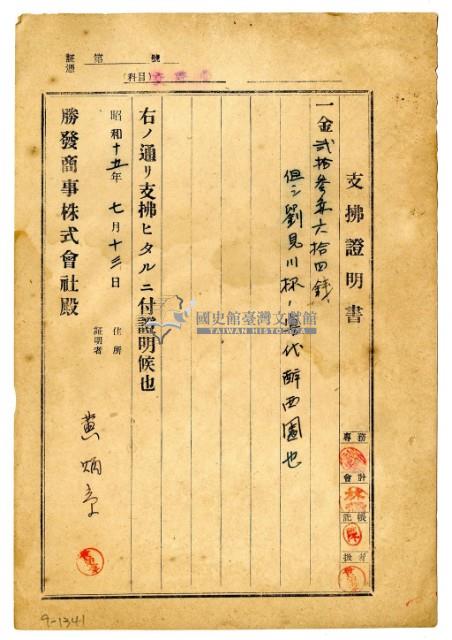 証憑 第 號
(科目)
支拂證明書
一金貳拾參円六拾四錢
但シ劉見川 代醉西園也
右ノ通リ支拂ヒタルニ付證明候也
昭和十五年 七月十三日
住所
証明者
黃炳
勝發商事株式會社殿
專務
會計
林
記帳
扱者
國史館臺灣文獻館
TAIWAN HISTORICA
9-1341